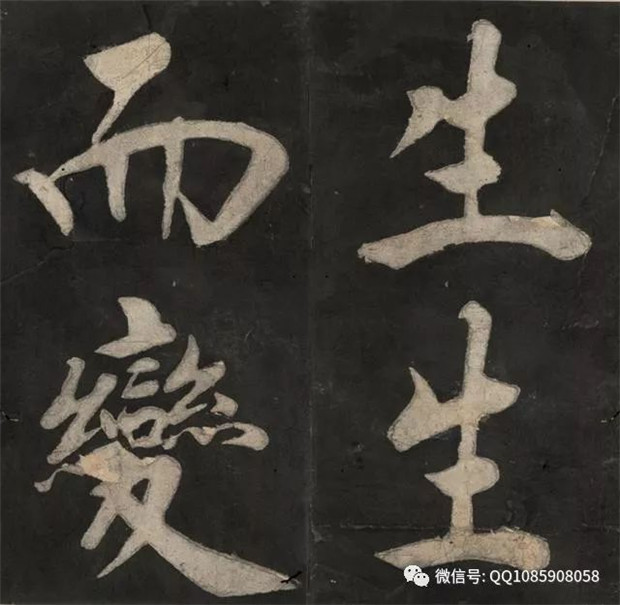 生生
而變
微信号: QQ1085908058